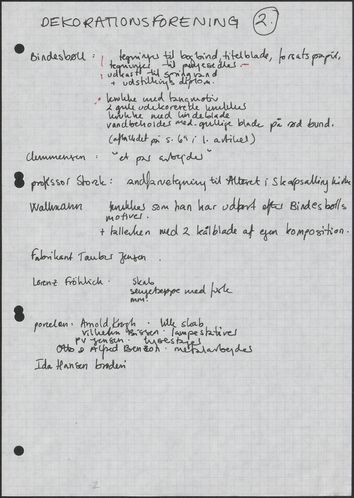 DEKORATIONSFORENING 2.
Bindesbøll: tegninger til bogbind, titelblade, forsatspapir,
tegninger til
udkast til springvand
+ udstillings diplom.
krukke med tangmotiv
2 gule udekorerede krukker
krukke med lindeblade
vandbeholder med gullige blade på rød bund.
(afbildet på s. 69 i 1. artikel)
Clemmensen: "et par arbejder"
professor Storck: til Alteret i Skarpsalling kirke
Wallmann krukker som han har udført efter Bindesbølls
motiver.
+ tallerken med 2 kålblade af egen komposition.
Fabrikant Tauber Jensen.
Lorenz Frölich: skab
sengetæppe med
mm.
porcelæn: Arnold Krogh. lille skab
Vilhelm Bissen. lampestativer
PV Jensen. lysestager
Otto & Alfred Benzon. metalarbejder
Ida Hansen broderi
2